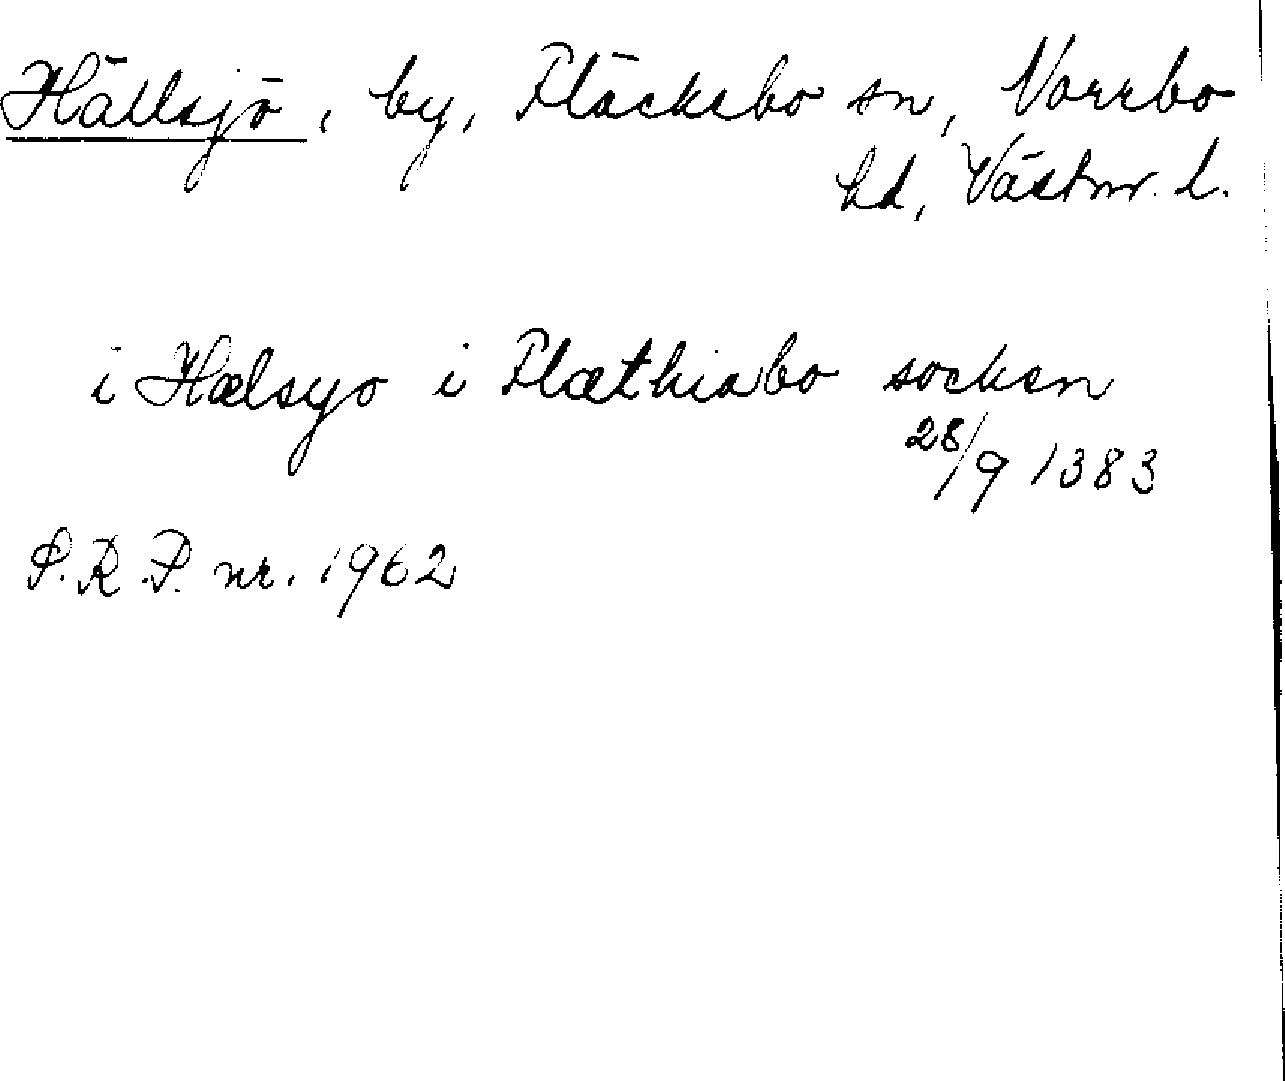 Hällsjö, by, Fläcksbo sn, Norrbo
hd, Västm. l.
i Hælsyo i Flæthiabo socken
28/9 1383
S.R.P. nr. 1962